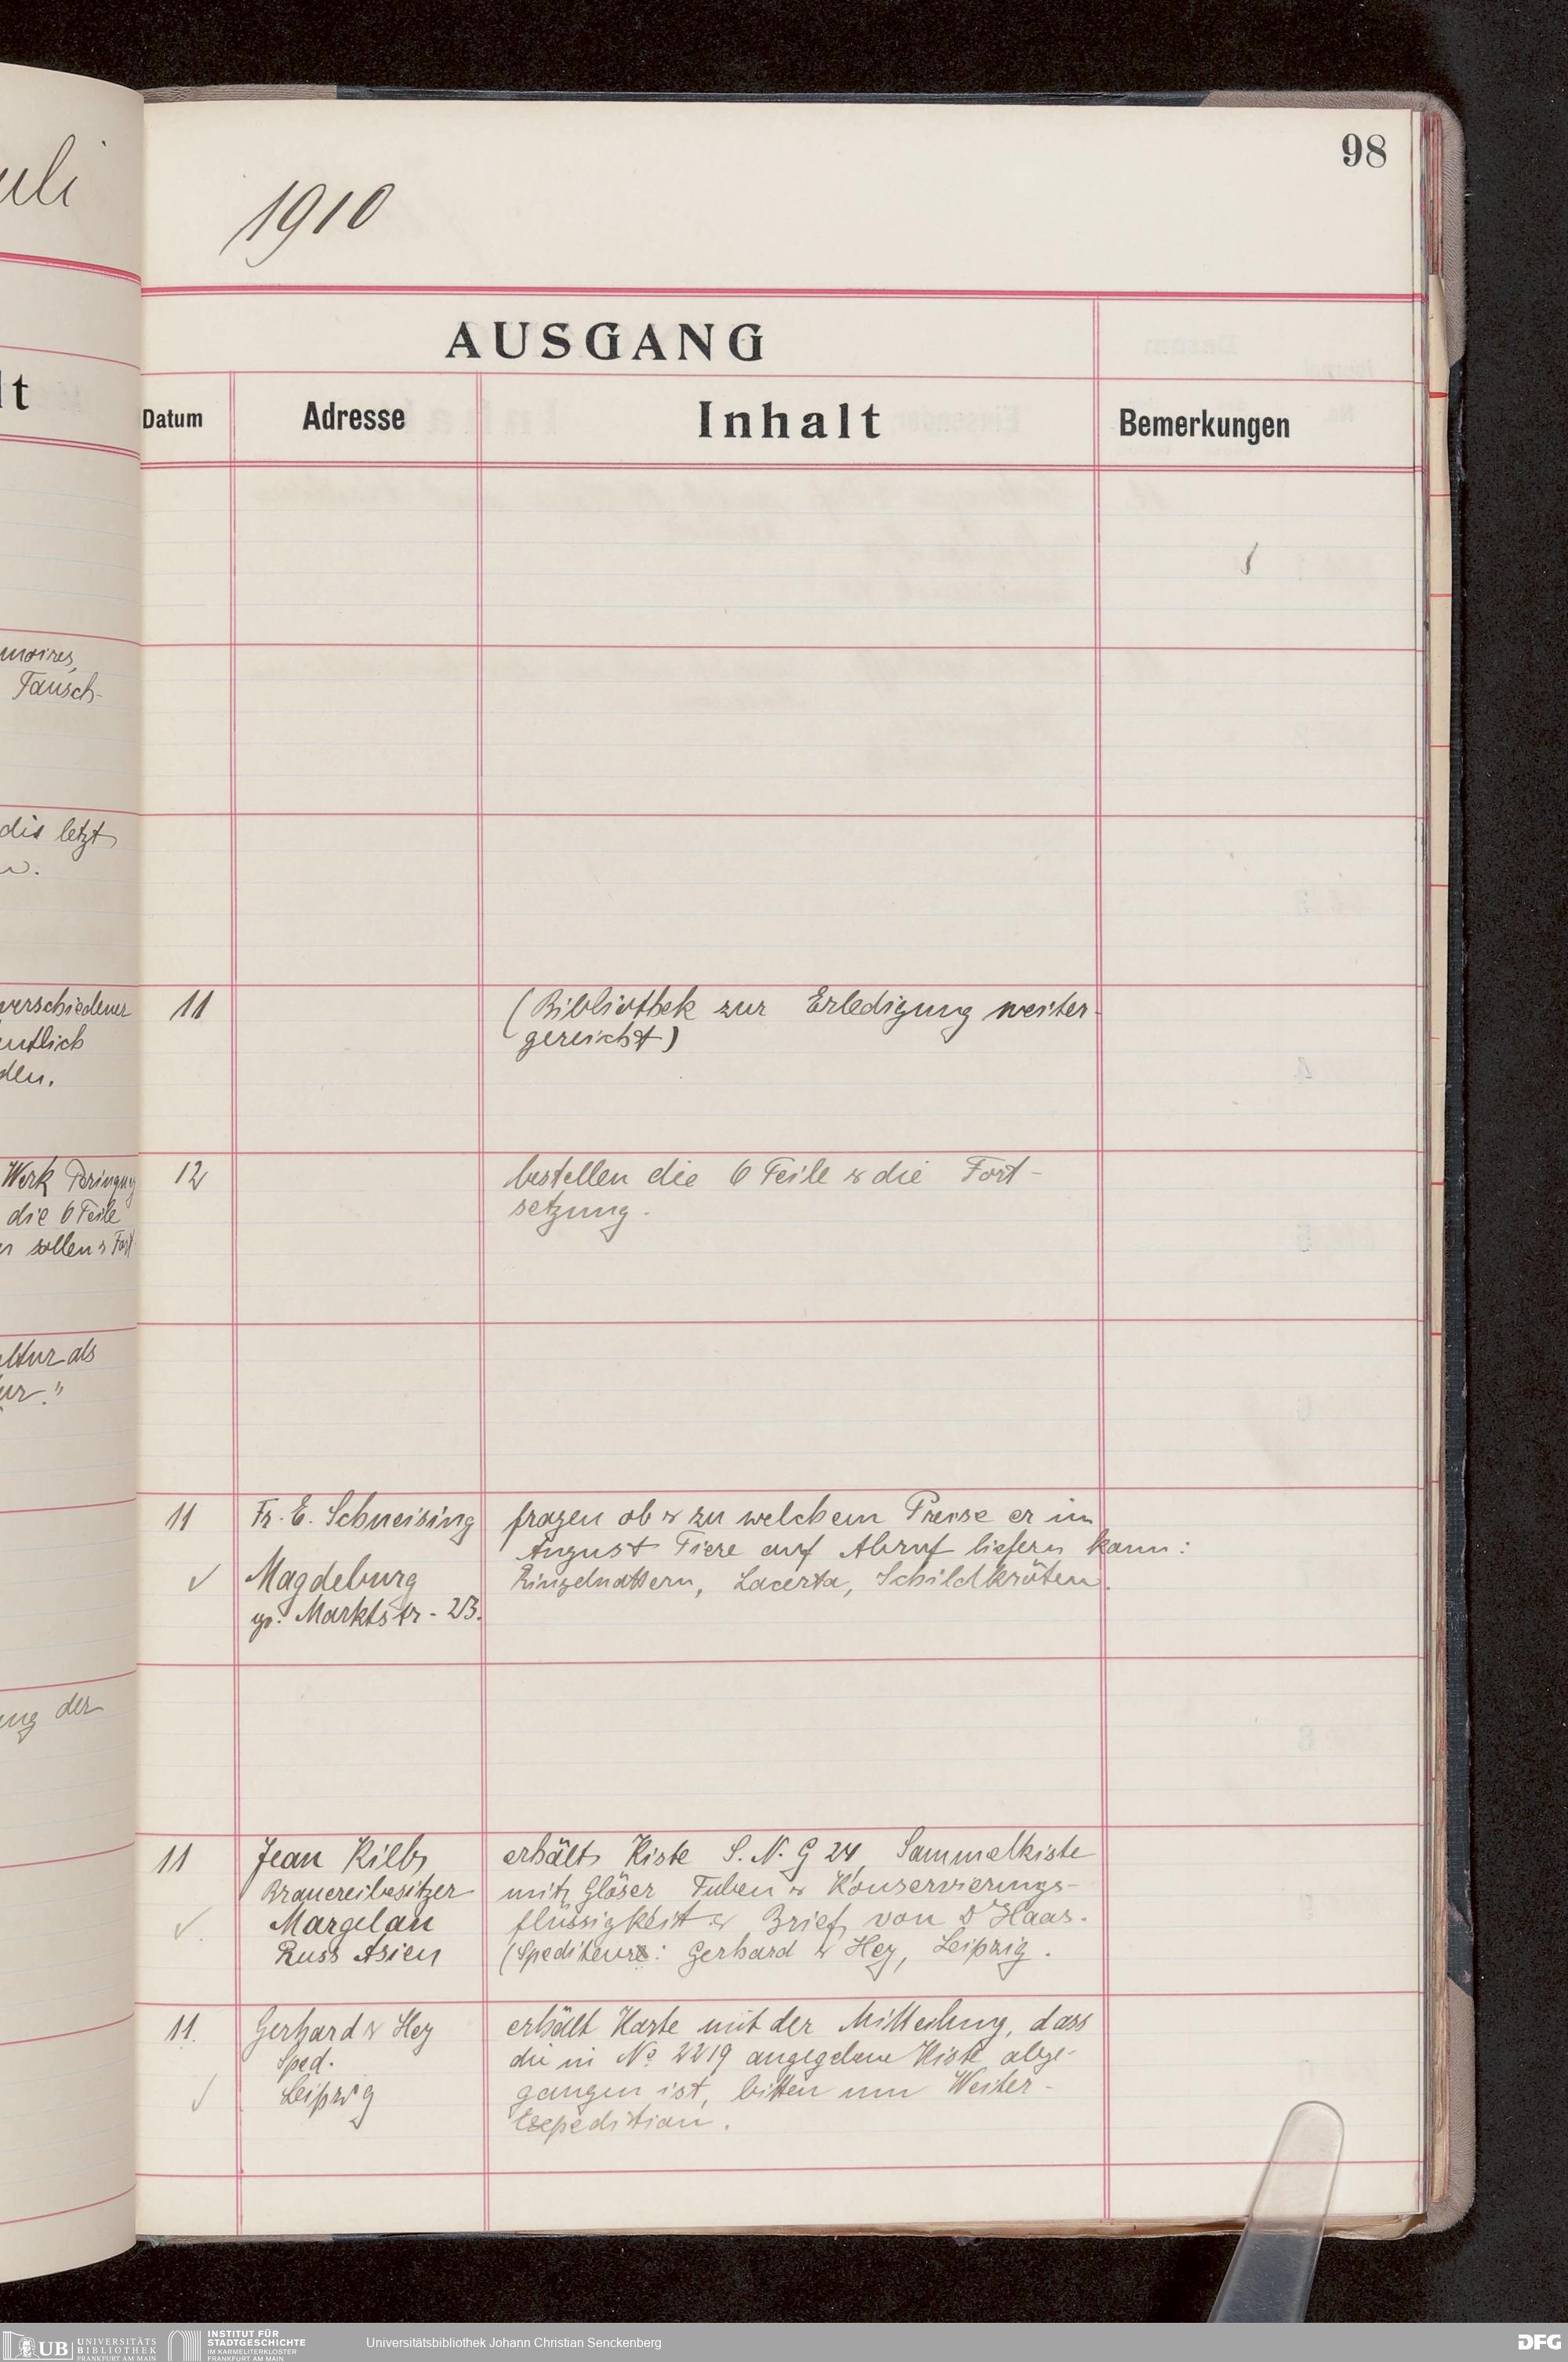 uli
lt
moires,
Tausch-
dis letzt
w.
verschiedener
entlich
den.
Werk
die 6 Teile
sollen & Fort
ltur als
ur."
ung der
98
1910
AUSGANG
Datum
Adresse
Inhalt
Bemerkungen
11
(Bibliothek zur Erledigung weiter-
gereicht)
12
bestellen die 6 Teile & die Fort-
setzung.
11
Fr. E. Schneising
Magdeburg
gr. Marktstr. 23.
fragen ob & zu welchem Preise er im
August Tiere auf Abruf liefern kann:
Ringelnattern, Lacerta, Schildkröten.
11
Jean Kilb,
Brauereibesitzer
Margelan
Russ Asien
erhält Kiste S. N. G 24, Sammelkiste
mit Gläser Tuben & Konservierungs-
flüssigkeit & Brief von Dr Haas.
(Spediteure: Gerhard & Hey, Leipzig.
11.
Gerhard & Hey
Sped.
Leipzig
erhält Karte mit der Mitteilung, dass
die in No 2219 angegebene Kiste abge-
gangen ist, bitten um Weiter-
Expedition.
UB UNIVERSITÄTS
BIBLIOTHEK
FRANKFURT AM MAIN
INSTITUT FÜR
STADTGESCHICHTE
IM KARMELITERKLOSTER
FRANKFURT AM MAIN
Universitätsbibliothek Johann Christian Senckenberg
DFG